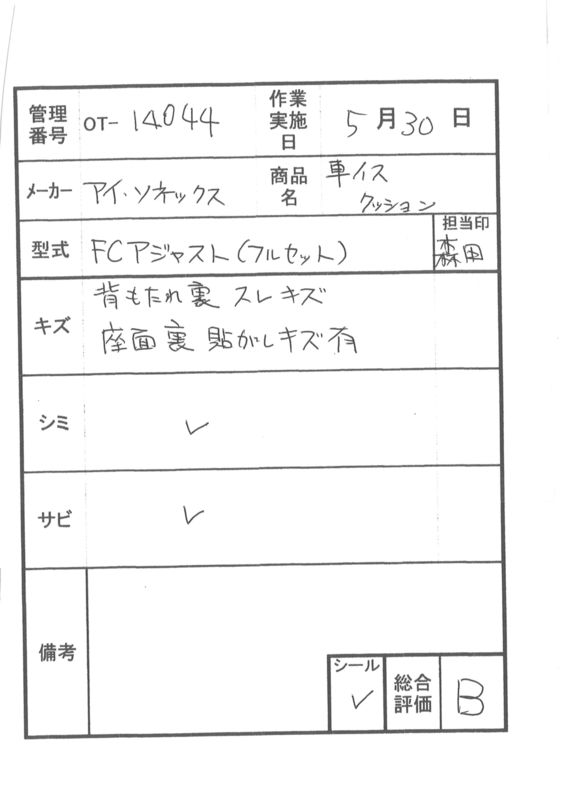 管理番号 OT- 14044 作業実施日 5月30日
メーカー アイ・ソネックス 商品名 車イスクッション
型式 FCアジャスト(フルセット) 担当印 森田
キズ 背もたれ裏 スレキズ
座面裏 貼がしキズ有
シミ ✓
サビ ✓
備考
シール ✓ 総合評価 B